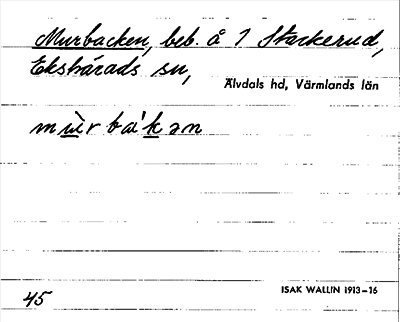 Murbacken, beb. å 1 Stackerud,
Ekshärads sn,
Älvdals hd, Värmlands län
mùr ba'kən
ISAK WALLIN 1913-16
45